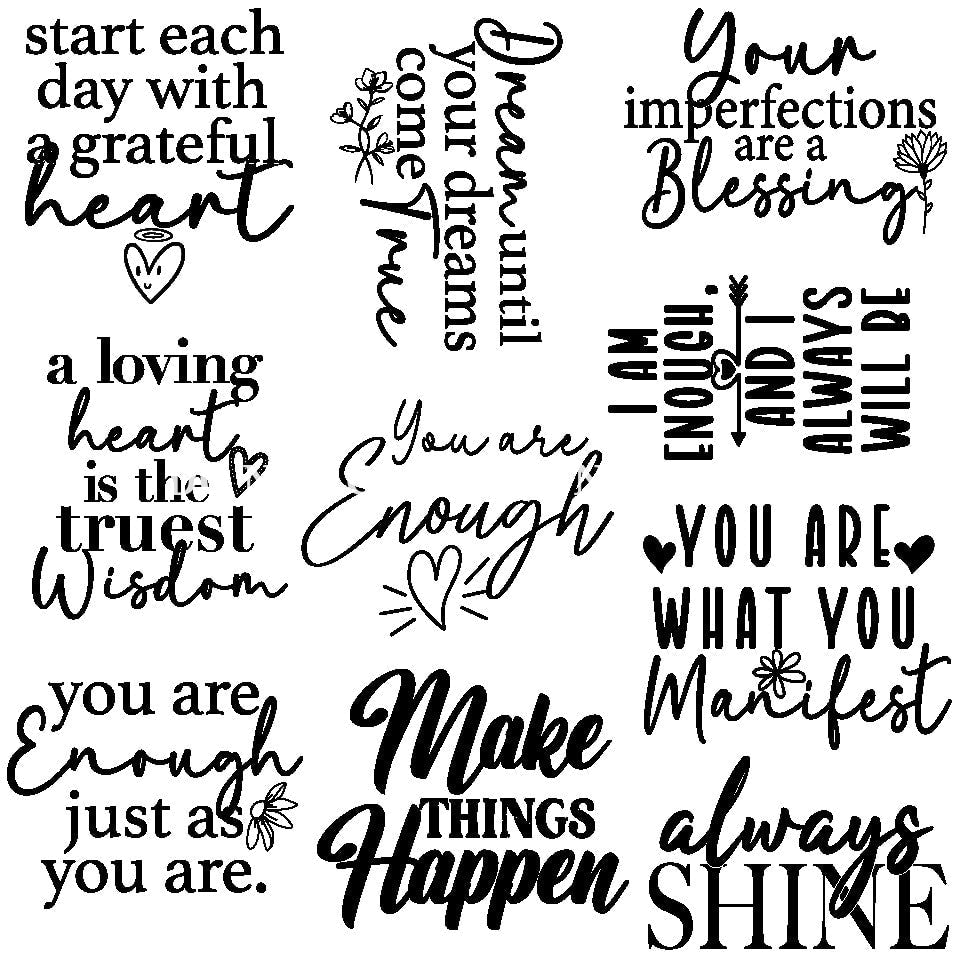 start each
day with
a grateful
heart
Dream until
your dreams
come True
Your
imperfections
are a
Blessing
a loving
heart
is the
truest
Wisdom
You are
Enough
I AM
ENOUGH.
AND I
ALWAYS
WILL BE
YOU ARE
WHAT YOU
Manifest
you are
Enough
just as
you are.
Make
THINGS
Happen
always
SHINE